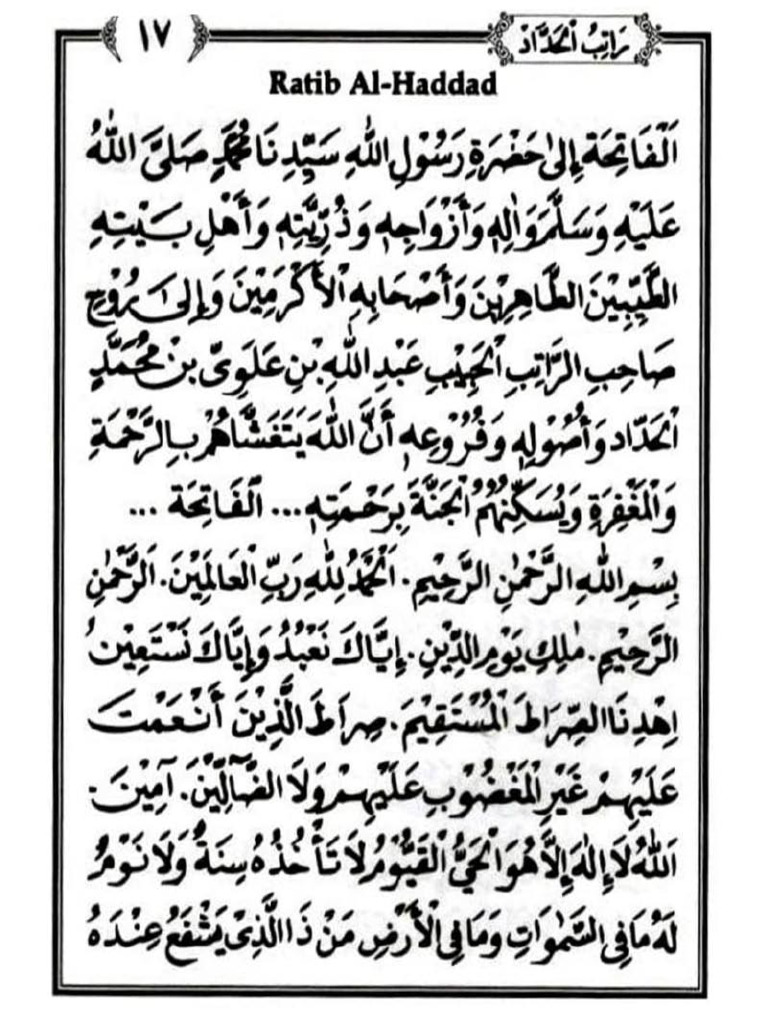 رَاتِبُ الْحَدَّادْ
١٧
Ratib Al-Haddad
اَلْفَاتِحَةَ إِلَىٰ حَضْرَةِ رَسُوْلِ اللّٰهِ سَيِّدِنَا مُحَمَّدٍ صَلَّى اللّٰهُ
عَلَيْهِ وَسَلَّمَ وَاٰلِهِ وَأَزْوَاجِهِ وَذُرِّيَّتِهِ وَأَهْلِ بَيْتِهِ
الطَّيِّبِيْنَ الطَّاهِرِيْنَ وَأَصْحَابِهِ الْأَكْرَمِيْنَ وَإِلَىٰ رُوْحِ
صَاحِبِ الرَّاتِبِ الْحَبِيْبِ عَبْدِ اللّٰهِ بْنِ عَلَوِيّ بْنْ مُحَمَّدٍ
الْحَدَّاد وَأُصُوْلِهِ وَفُرُوْعِهِ أَنَّ اللّٰهَ يَتَغَشَّاهُمْ بِالرَّحْمَةِ
وَالْمَغْفِرَةِ وَيُسَكِّنُهُمُ الْجَنَّةَ بِرَحْمَتِهِ... الْفَاتِحَة ...
بِسْمِ اللّٰهِ الرَّحْمٰنِ الرَّحِيْمِ. اَلْحَمْدُ لِلّٰهِ رَبِّ الْعَالَمِيْنَ. اَلرَّحْمٰنِ
الرَّحِيْمِ. مٰلِكِ يَوْمِ الدِّيْنِ. إِيَّاكَ نَعْبُدُ وَإِيَّاكَ نَسْتَعِيْنُ
اِهْدِنَا الصِّرَاطَ الْمُسْتَقِيْمَ. صِرَاطَ الَّذِيْنَ أَنْعَمْتَ
عَلَيْهِمْ غَيْرِ الْمَغْضُوْبِ عَلَيْهِمْ وَلَا الضَّآلِّيْنَ. آمِيْنَ.
اَللّٰهُ لَا إِلٰهَ إِلَّا هُوَ الْحَيُّ الْقَيُّوْمُ لَا تَأْخُذُهُ سِنَةٌ وَلَا نَوْمٌ
لَهُ مَا فِي السَّمٰوَاتِ وَمَا فِي الْأَرْضِ مَنْ ذَا الَّذِيْ يَشْفَعُ عِنْدَهُ